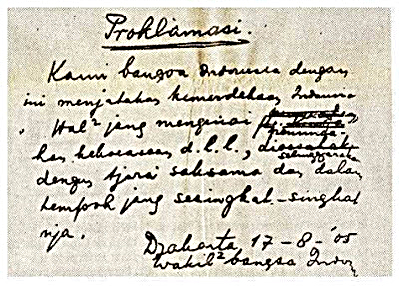 Proklamasi.
Kami bangsa Indonesia dengan
ini menjatakan kemerdekaan Indonesia.
Hal² jang mengenai
peminda-
han kekoeasaan d.l.l., dioesahakan
diselenggarakan
dengan tjara saksama dan dalam
tempoh jang sesingkat-singkat
nja.
Djakarta 17 - 8 - '05
Wakil² bangsa Indon